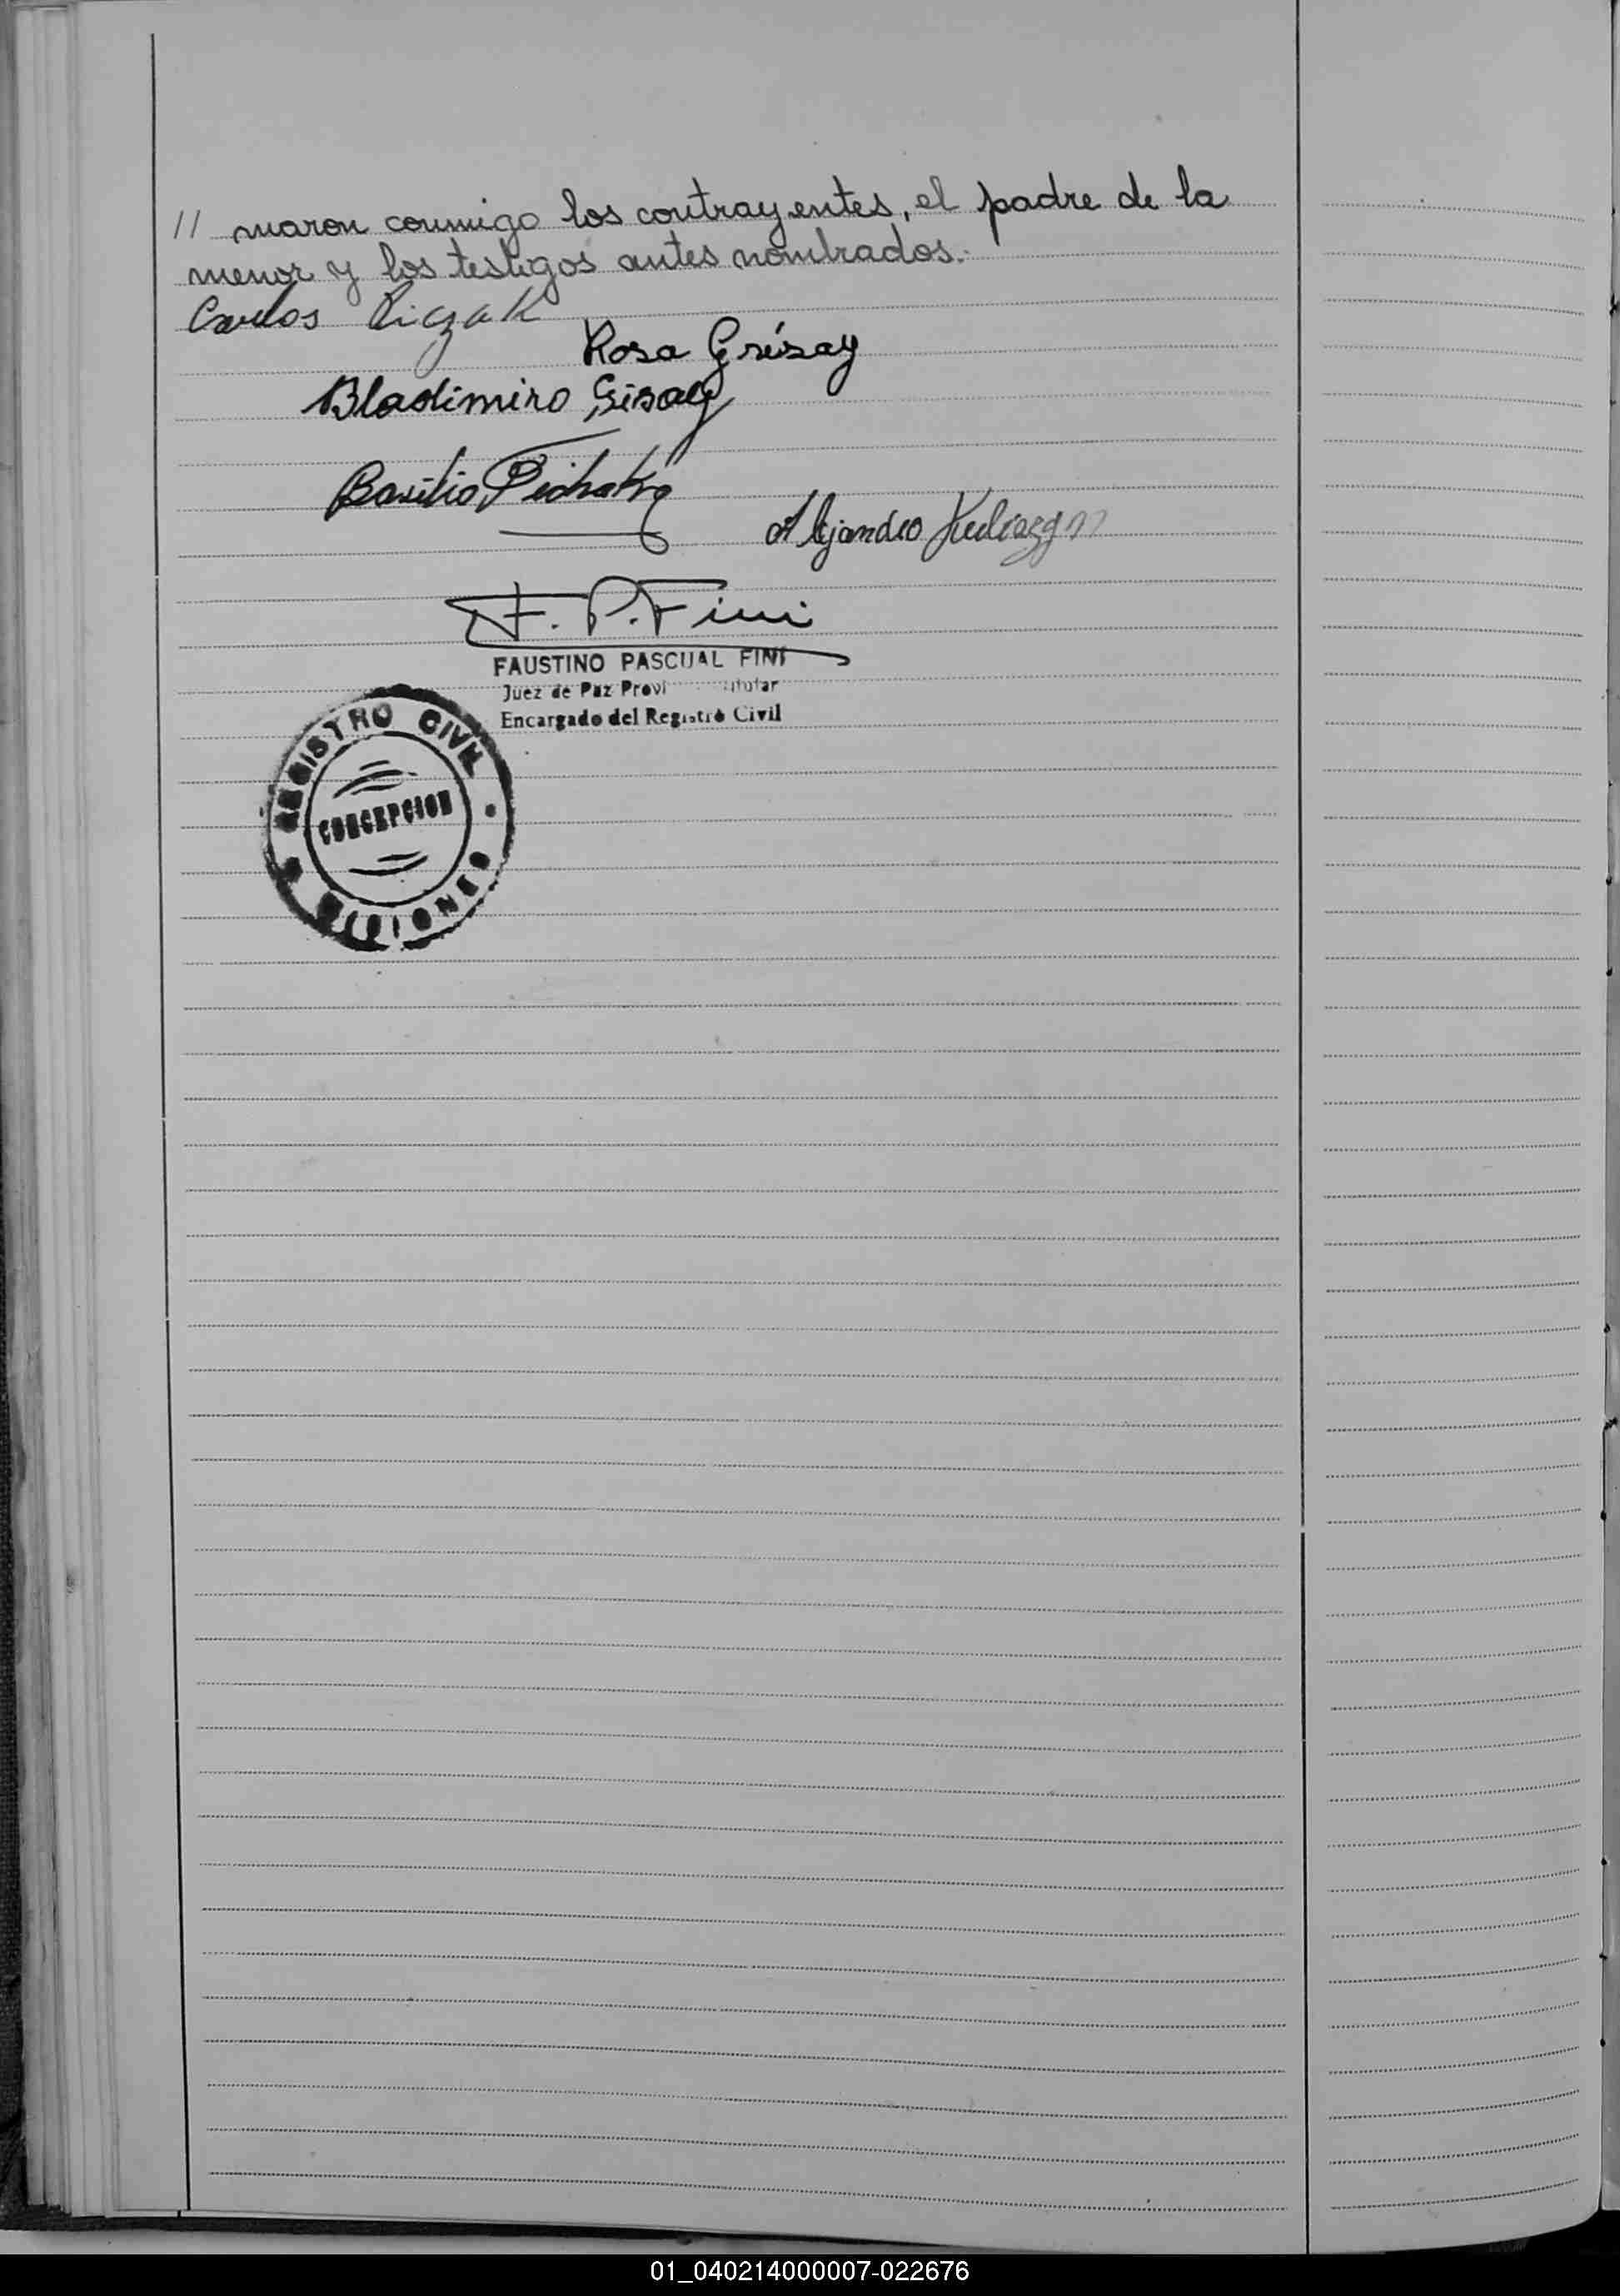 // maron conmigo los contrayentes, el padre de la
menor y los testigos antes nombrados.-
Carlos
Rosa Grísay
Bladimiro Gisay
Basilio
Alejandro
F. P. Fini
FAUSTINO PASCUAL FINI
Juez de Paz
Encargado del Registro Civil
REGISTRO CIVIL
CONCEPCION
MISIONES
01_040214000007-022676